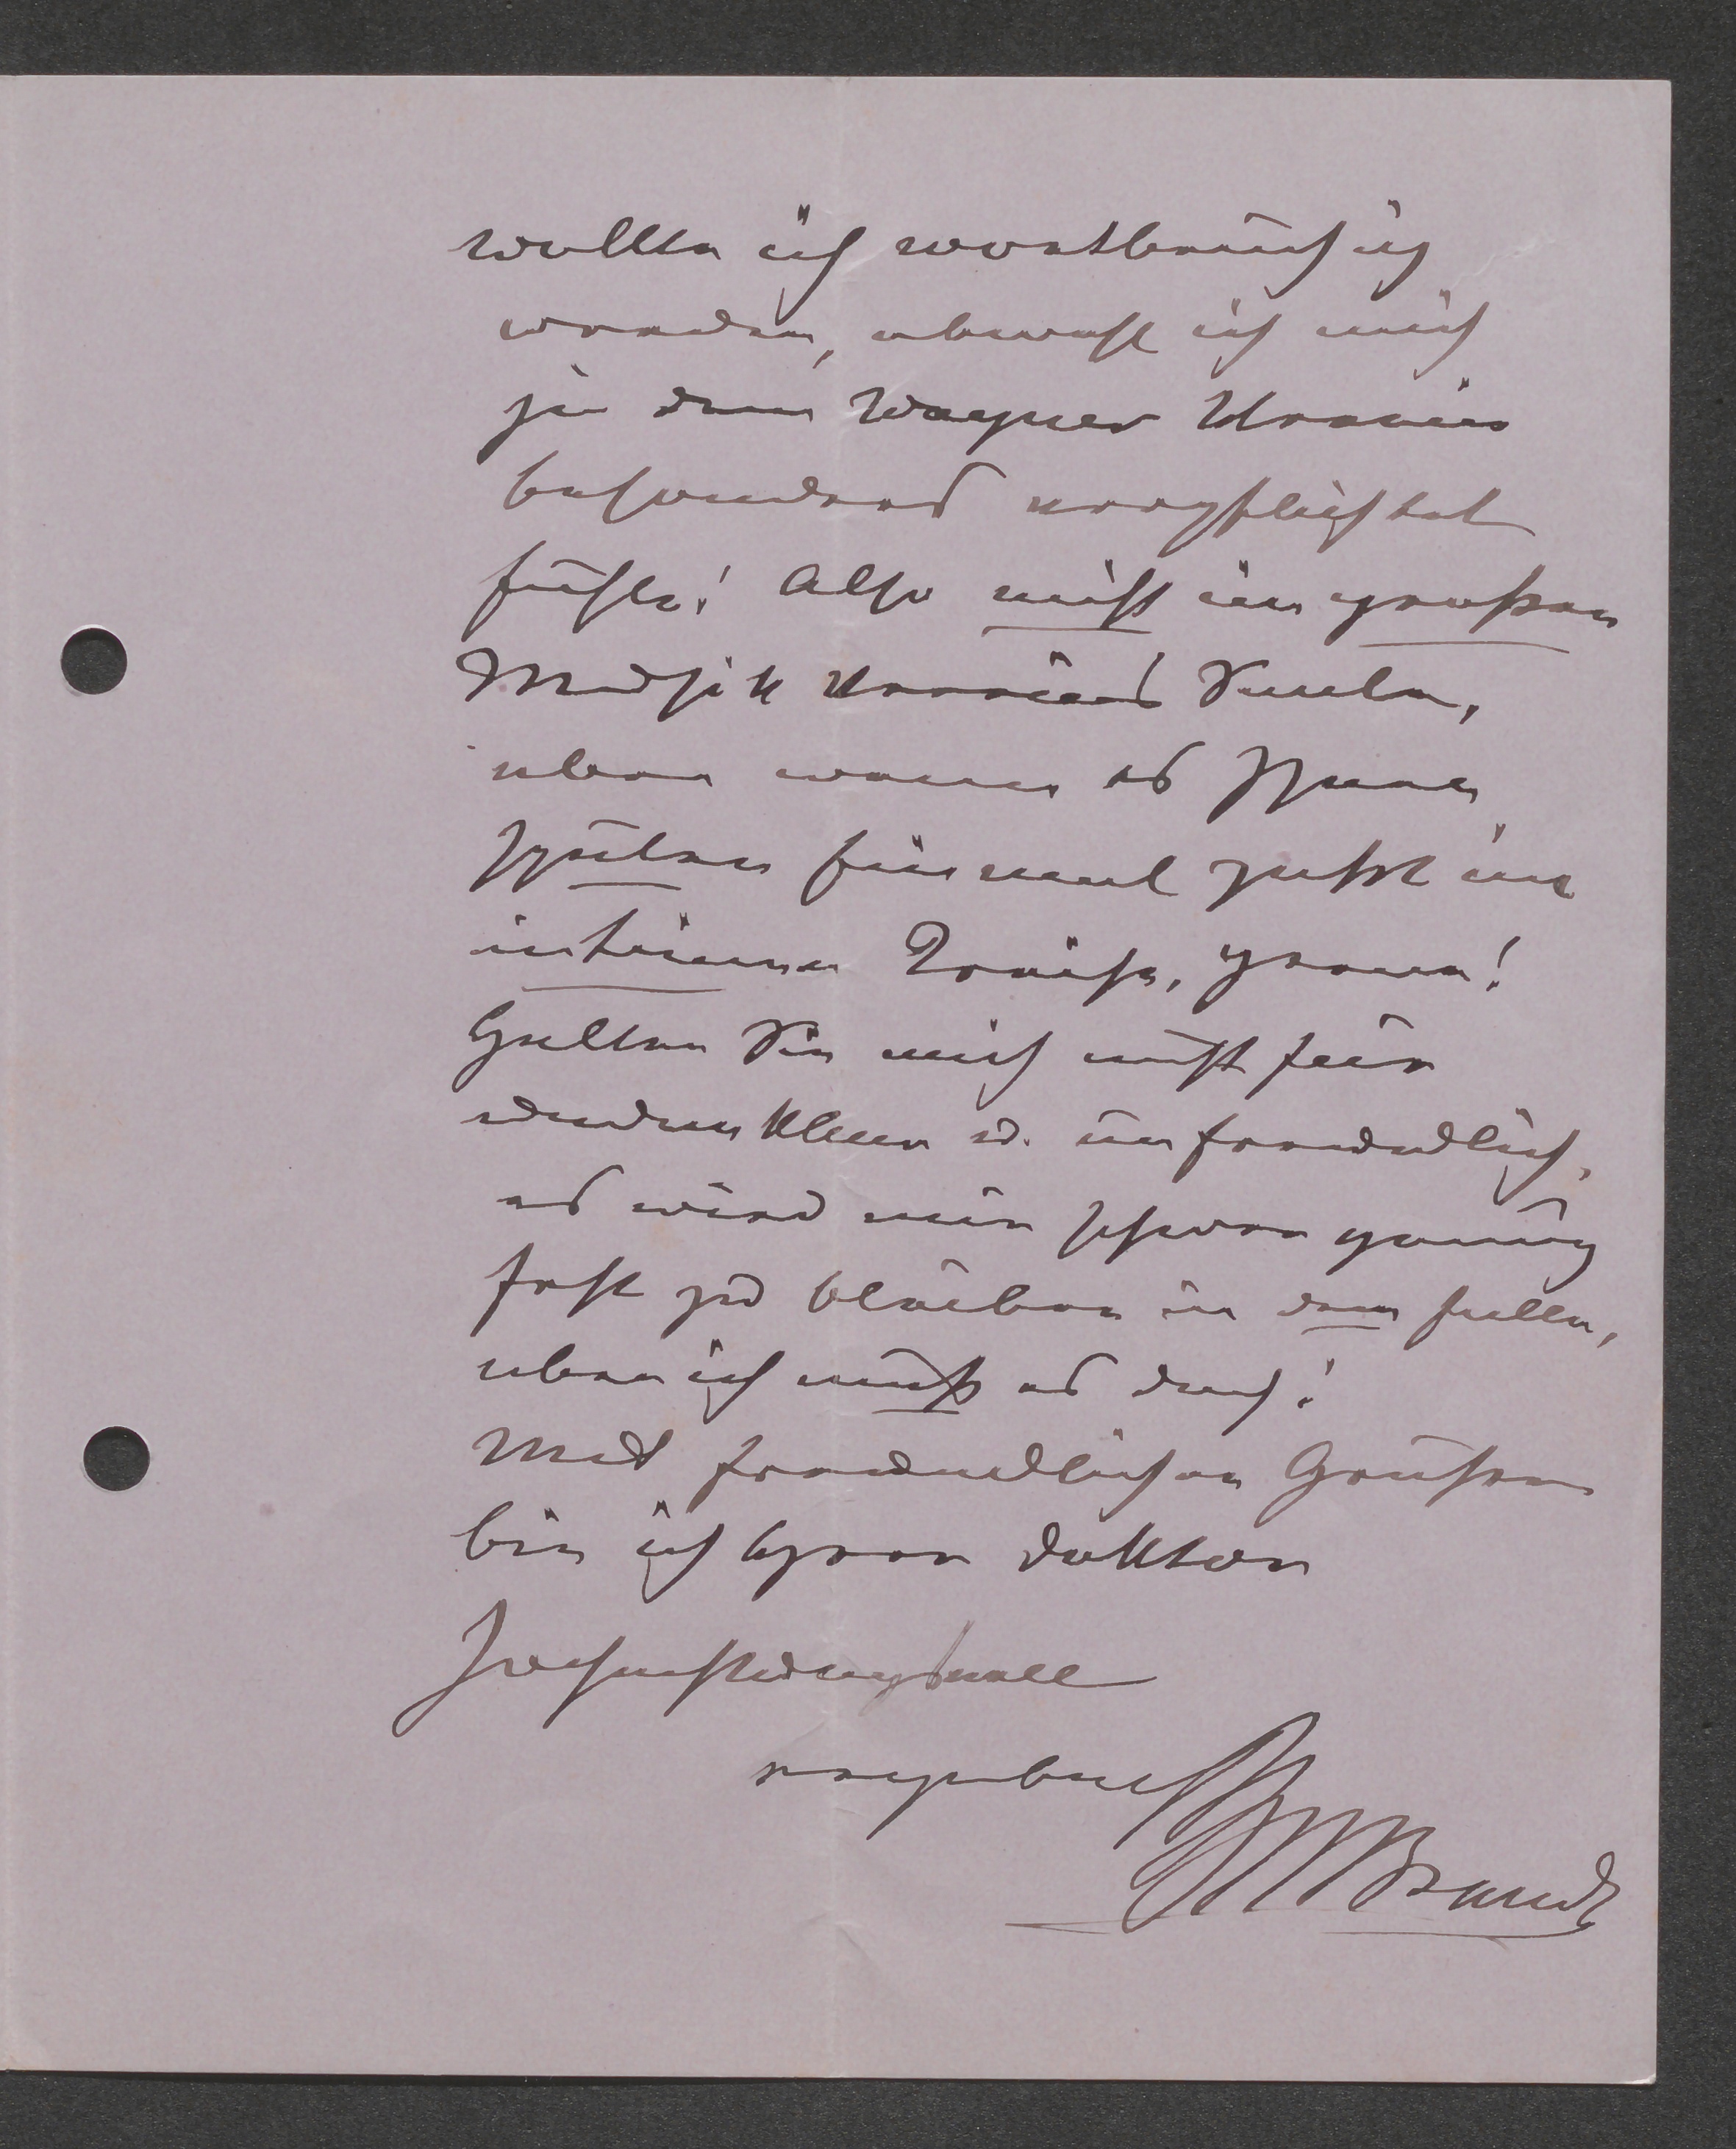 wollte ich wortbrüchig
werden, obwohl ich mich
ja dem Wagner Verein
besonders verpflichtet
fühle! Also nicht im großen
Musik Vereins Saale,
aber wenn es Ihnen
später einmal paßt im
intimen Kreise, gerne!
Halten Sie mich nicht für
undankbar u. unfreundlich,
es wird mir schwer genug
fest zu bleiben in dem Falle,
aber ich muß es doch!
Mit freundlichen Grüßen
bin ich Herrn Doktor
hochachtungsvoll
ergebenst
MBrandt